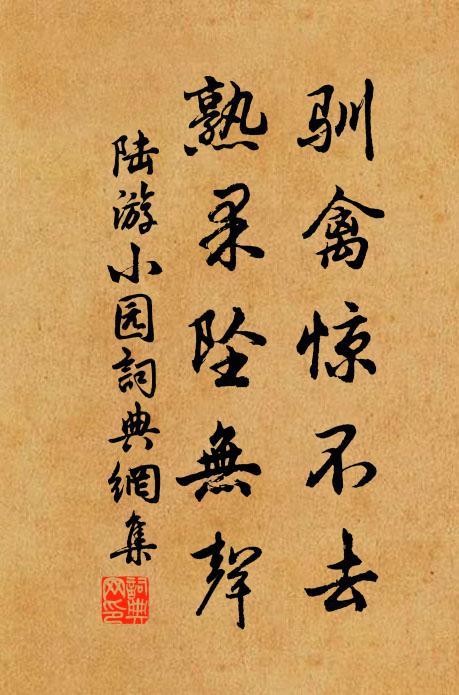 驯禽惊不去
熟果坠無聲
陆游小园詞典網集
詞典网印